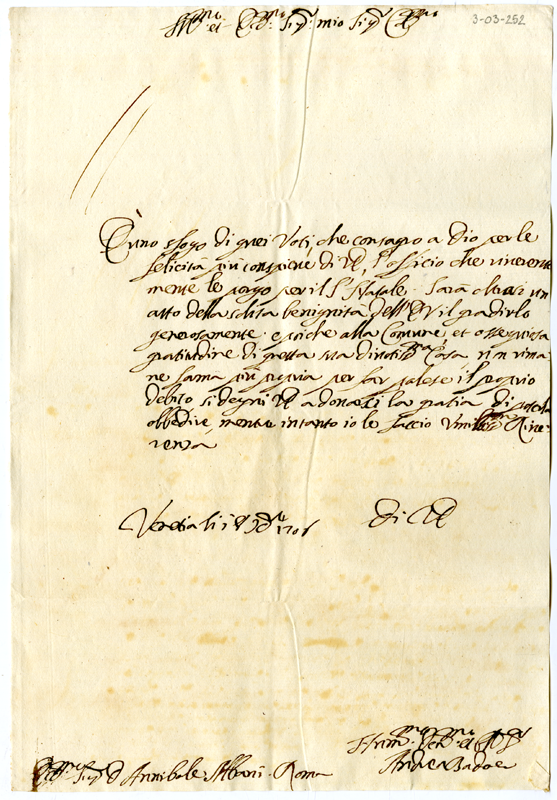 3-03-252
Ill.mo et Ecc.mo Sig.r mio Sig.r Col.mo
È uno sfogo di quei Voti, che consagro a Dio per le
felicità più conspicue di VE, l'officio che riverente
mente le porgo per il S.to Natale. Sarà
atto della solita benignità dell'EV il gradirlo
generosamente e poiche alla Comune, et ossequiosa
gratitudine di questa sua divotiss.ma Casa non rima
ne fama più propria per far palese il proprio
debito si degni VE a donarci la gratia di poterla
obbedire, mentre intanto io le faccio Umiliss.ma Rive-
renza
Venetia li Xbre 1706
Di VE
Andrea Badoer
Sig.r D Annibale Albani Roma